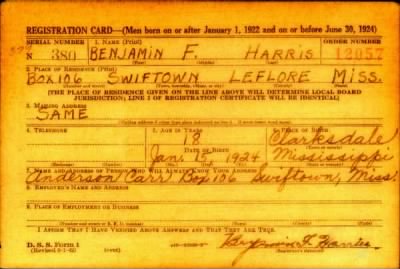 REGISTRATION CARD—(Men born on or after January 1, 1922 and on or before June 30, 1924)
SERIAL NUMBER 1. NAME (Print) ORDER NUMBER
N 380 BENJAMIN F. HARRIS 12057
2. PLACE OF RESIDENCE (Print)
BOX 106 SWIFTOWN LEFLORE MISS.
(Number and street) (Town, township, village, or city) (County) (State)
[THE PLACE OF RESIDENCE GIVEN ON THE LINE ABOVE WILL DETERMINE LOCAL BOARD
JURISDICTION; LINE 2 OF REGISTRATION CERTIFICATE WILL BE IDENTICAL]
3. MAILING ADDRESS
SAME
4. TELEPHONE 5. AGE IN YEARS 6. PLACE OF BIRTH
18 Clarksdale
DATE OF BIRTH (Town or county)
Jan. 15 1924 Mississippi
(Exchange) (Number) (Mo.) (Day) (Yr.) (State or country)
7. NAME AND ADDRESS OF PERSON WHO WILL ALWAYS KNOW YOUR ADDRESS
Anderson Carr Box 106 Swiftown, Miss.
8. EMPLOYER'S NAME AND ADDRESS
9. PLACE OF EMPLOYMENT OR BUSINESS
(Number and street or R. F. D. number) (Town) (County) (State)
I AFFIRM THAT I HAVE VERIFIED ABOVE ANSWERS AND THAT THEY ARE TRUE.
D. S. S. Form 1
Benjamin F. Harris